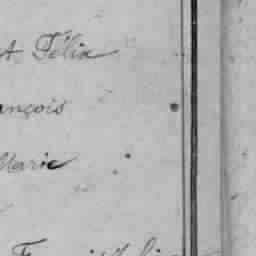 t Félix
ançois
Marie